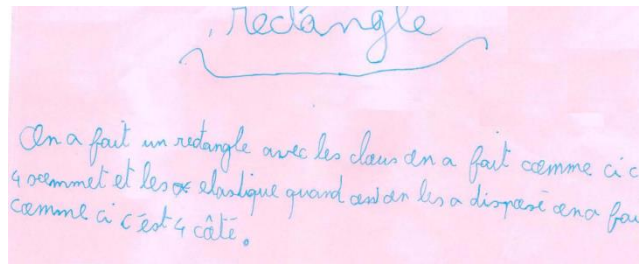 rectangle
On a fait un rectangle avec les clous on a fait comme ci c
4 sommet et les elastique quand on les a disposé on a fai
comme ci c'est 4 côté.